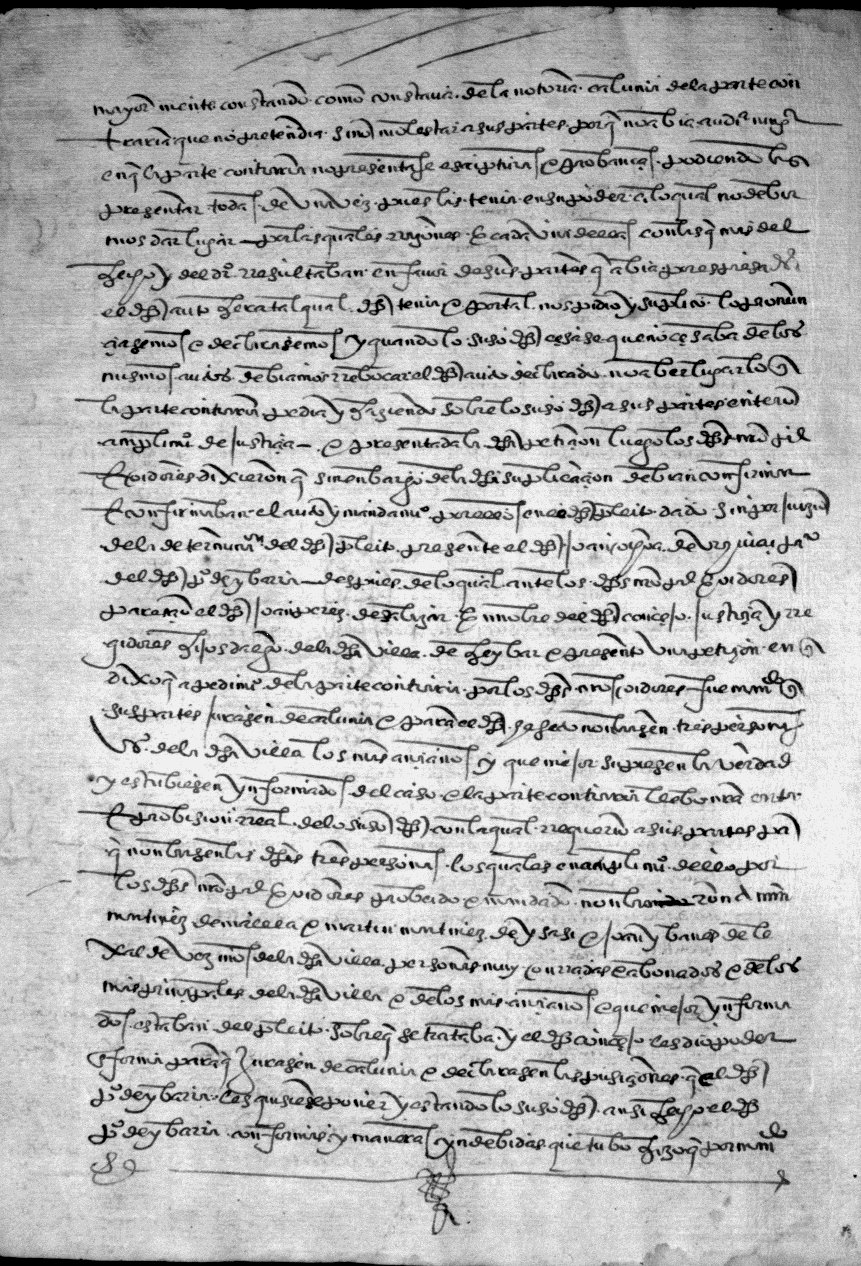 mayor mente constando como constava de la notoria calunia de la parte con
traria que no pretendia sino molestar a sus partes porq no abia audiª
en q la parte contraria no presentase escripturas e probanças podiendo las
presentar todas de una vez pues las tenia en su poder a lo qual no debia
mos dar lugar por las quales rrazones e cada una dellas con las q mas del
hecho y del drº rresultaban en favor de sus partes q abia por espresadas
el dho auto hera tal qual dho tenia e por tal nos pidio y suplico lo pronun
çiasemos e declarasemos y quando lo susodho çesase que no çesaba de los
mismos autos debiamos rrebocar el dho auto declarando no aber lugar lo q
la parte contraria pedia y haziendo sobre lo susodho a sus partes entero
conplimiº de justiçia e presentada la dha petiçion luego los dhos nro presidente
e oidores dixieron q sin enbargo de la dha suplicaçion debian confirmar
e confirmaban el auto y mandamiº por ellos en el dho pleito dado sin perjuizio
de la determinaçion del dho pleito presente el dho joan ochoa de urquiça pºr
del dho pº de ybarra despues de lo qual ante los dhos nro presidente e oidores
pareçio el dho joan perez de salazar en nonbre del dho conçejo justiçia y rre
gidores hijosdalgo de la dha villa de heybar e presento una petiçion en q
dixo q a pedimiº de la parte contraria por los dhos nros oidores fue mandado q
sus partes jurasen de calunia e para el dho hefeto nonbrasen tres personas
vºs de la dha villa los mas ançianos y que mejor supiesen la verdad
y estubiesen ynformados del caso e la parte contraria llebo nra carta
e probision rreal de lo susodho con la qual rrequerio a sus partes pa
q nonbrasen las dhas tres personas los quales en conplimiº de lo por
los dhos nro presidente e oidores probeido e mandado nonbraron a
martinez de mallea e martin martinez de ysasi e joan ybanes de le
xalde vezinos de la dha villa personas muy onrradas e abonados e de los
mas prinçipales de la dha villa e de los mas ançianos e que mejor ynforma
dos estaban del pleito sobre q se trataba y el dho conçejo les dio poder
forma para q jurasen de calunia e declarasen las pusiçiones q el dho
pº de ybarra les quisiese poner y estando lo susodho ansi hecho el dho
pº de ybarra con formas y maneras yndebidas que tubo hizo q por mandado